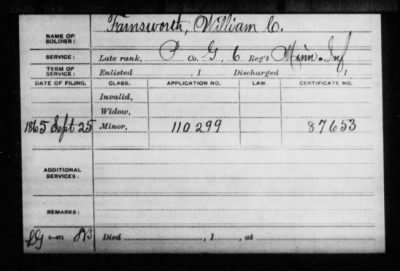 NAME OF SOLDIER: Farnsworth, William C.
SERVICE: Late rank, P Co. G, 6 Reg't Minn. Inf
TERM OF SERVICE: Enlisted , 1 Discharged , 1
DATE OF FILING. CLASS. APPLICATION NO. LAW. CERTIFICATE NO.
Invalid,
Widow,
1865 Sept 25 Minor, 110299 87653
ADDITIONAL SERVICES:
REMARKS:
Died , 1 , at